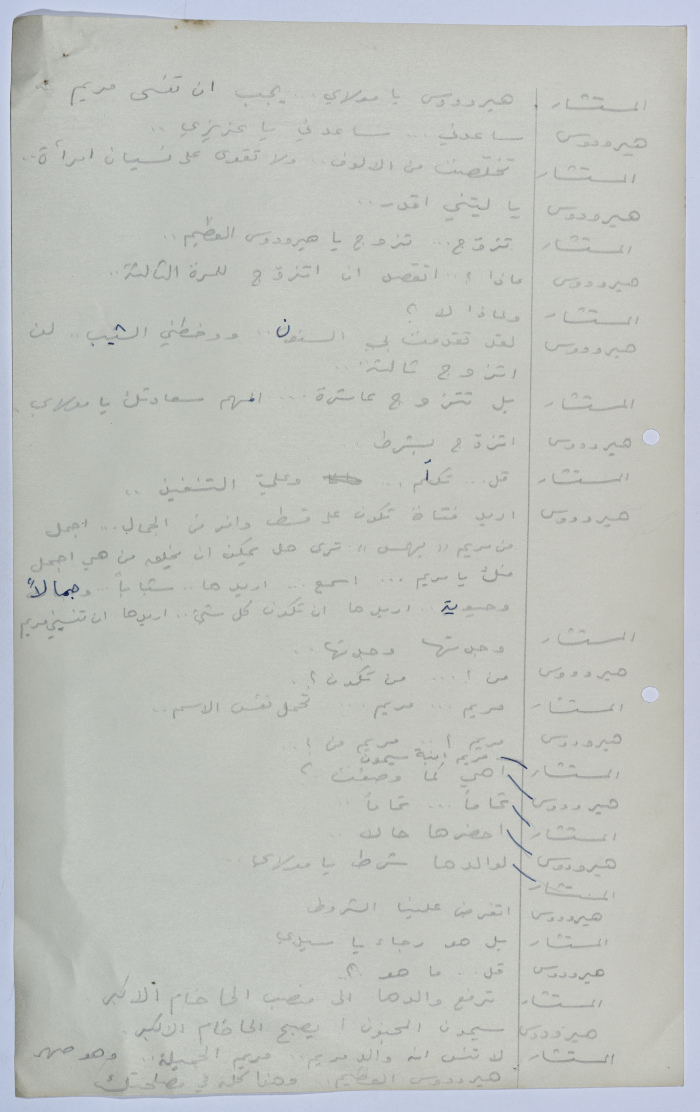 المستشار هيرودوس يا مولاي... يجب ان تنسى مريم
هيرودوس ساعدني... ساعدني يا عزيزي..
المستشار تخلّصت من الالوف.. ولا تقوى على نسيان امرأة..
هيرودوس يا ليتني اقدر..
المستشار تزوّج... تزوج يا هيرودوس العظيم..
هيرودوس ماذا ؟.. اتقصد ان اتزوّج للمرة الثالثة..
المستشار ولماذا لا ؟
هيرودوس لقد تقدمت بي السنون.. ووخطني الشيب.. لن
اتزوج ثالثة...
المستشار بل تتزوج عاشرة... المهم سعادتك يا مولاي.
هيرودوس اتزوّج بشرط..
المستشار قل... تكلّم... وعليّ التنفيذ..
هيرودوس اريد فتاة تكون على قسط وافر من الجمال.. اجمل
من مريم " " ترى هل يمكن ان يخلق من هي اجمل
منك يا مريم... اسمع... اريدها.. شباباً.. وجمالاً
وحيوية.. اريدها ان تكون كل شئ.. اريدها ان تنسيني مريم
المستشار وجدتها وجدتها..
هيرودوس من ؟... من تكون ؟.
المستشار مريم... مريم... تحمل نفس الاسم..
هيرودوس مريم ؟.. مريم من ؟..
مريم ابنة سيمون
المستشار أهي كما وصفت ؟
هيرودوس تماماً... تماماً
المستشار احضرها حالا..
هيرودوس لوالدها شرط يا مولاي..
المستشار
هيرودوس اتفرض علينا الشروط
المستشار بل هو رجاء يا سيدي
هيرودوس قل.. ما هو ؟
المستشار ترفع والدها الى منصب الحاخام الاكبر.
هيرودوس سيمون المجنون أ يصبح الحاخام الاكبر.
المستشار لا تنس انه والد مريم.. مريم الجميلة.. وهو صهر
هيرودوس العظيم.. وهذا كله في مصلحتك